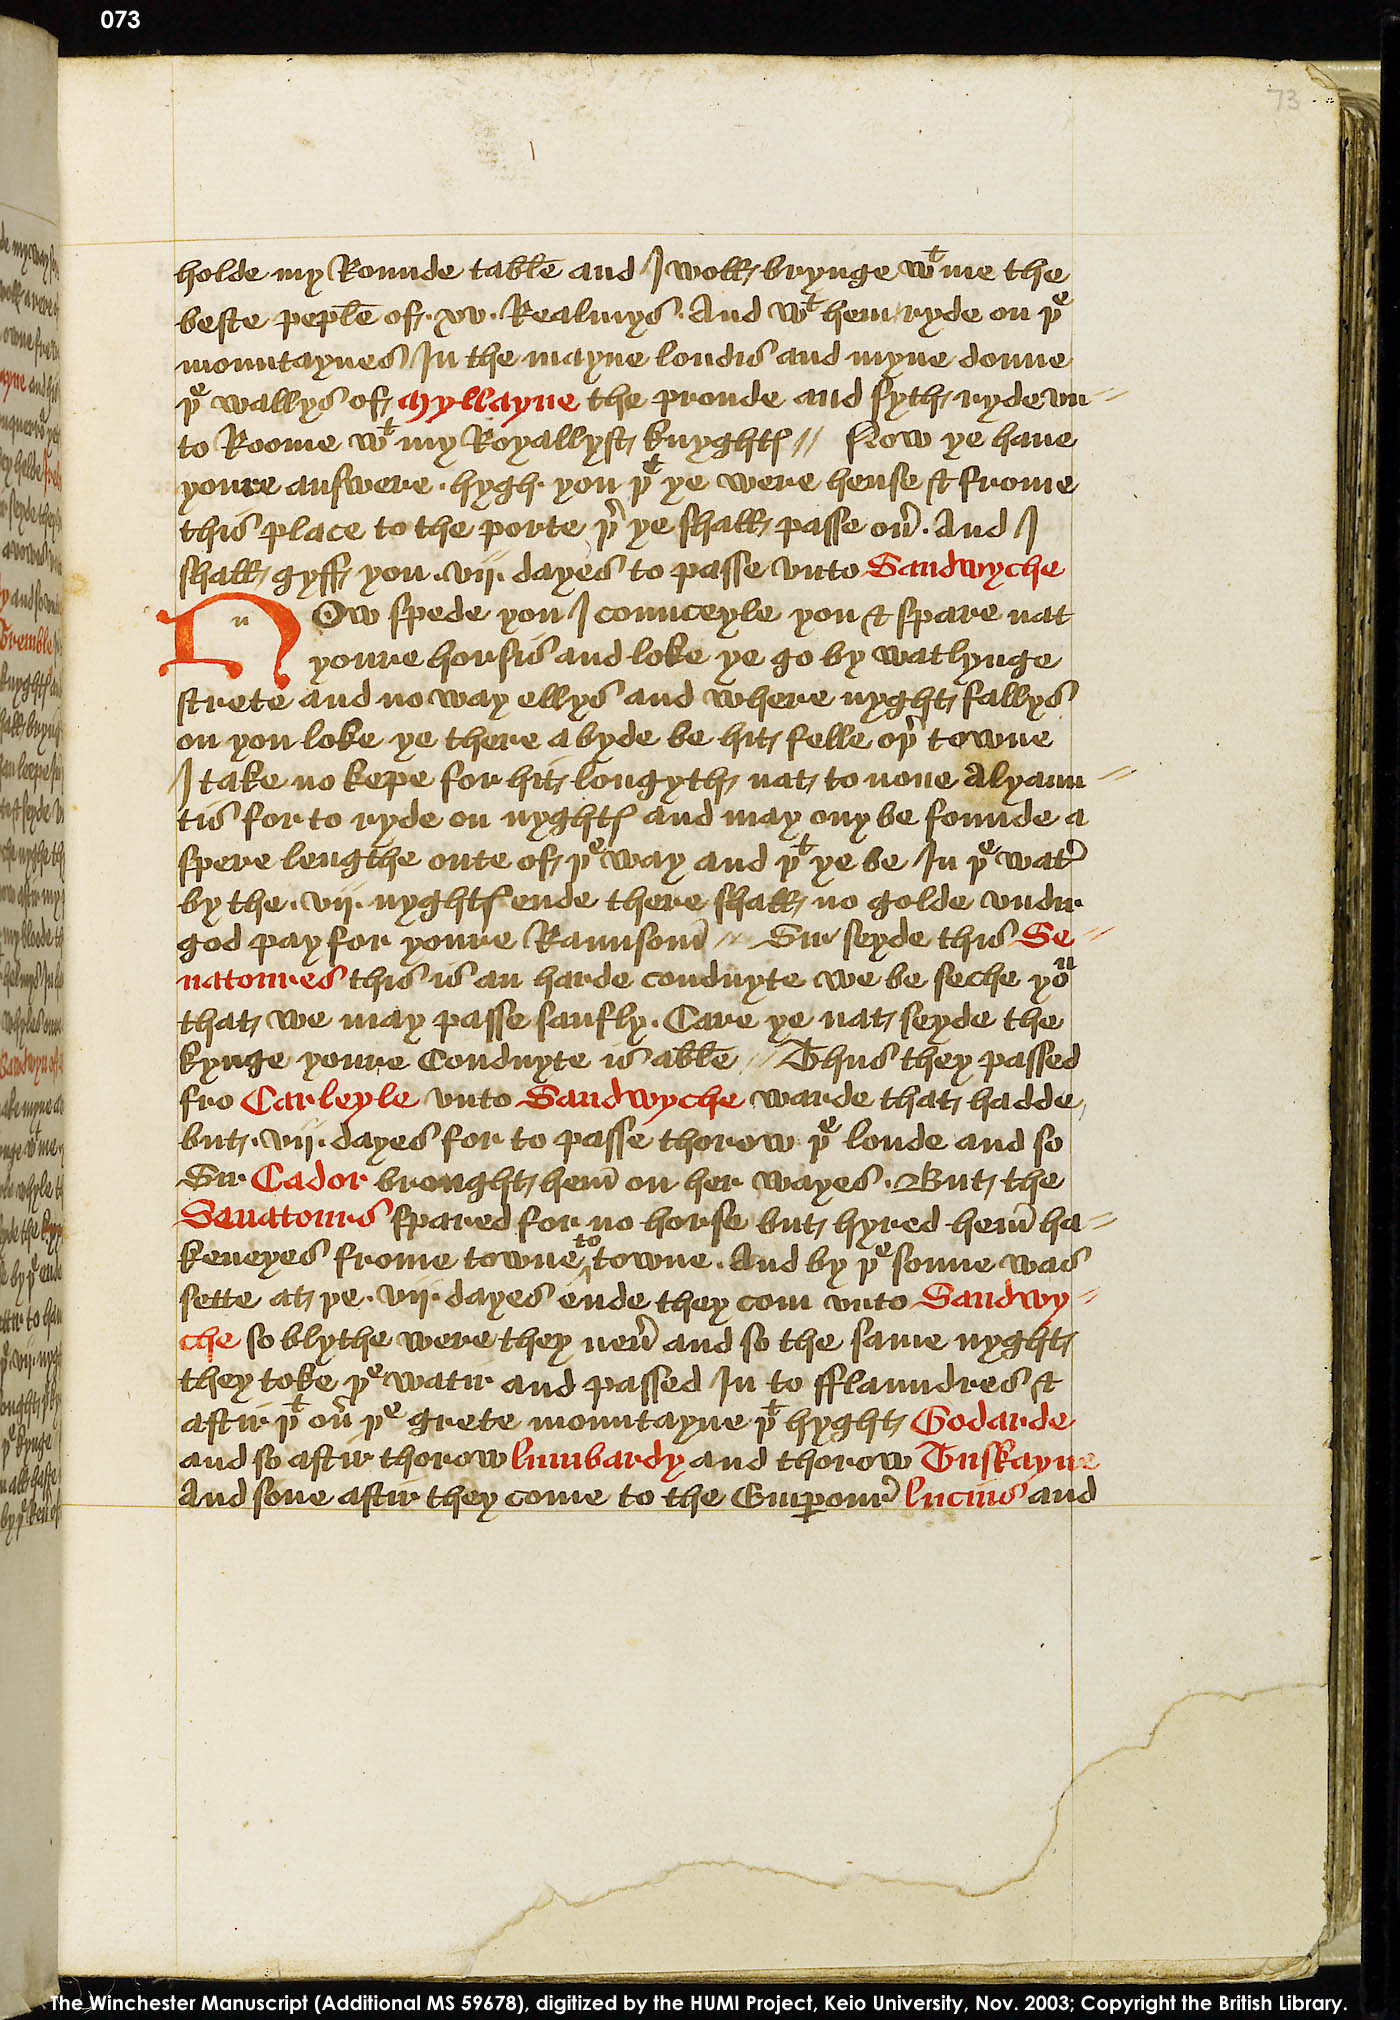 073
73
holde my Rounde table and I woll brynge wᵗ me the
beste peple of .xv. Realmys. And wᵗ hem ryde on þᵉ
mountaynes In the mayne londis and myne doune
þᵉ wallys of Myllayne the proude and syth ryde vn//
to Roome wᵗ my Royallyst knyghtꝭ // Now ye haue
youre answere. hygh you þᵗ ye were hense & frome
this place to the porte þʳ ye shall passe ouꝰ. And I
shall gyff you .vij. dayes to passe vnto Sandwyche
n
NOw spede you I counceyle you & spare nat
youre horsis and loke ye go by watlynge
strete and no way ellys and where nyght fallys
on you loke ye there abyde be hit felle oþʳ towne
I take no kepe for hit longyth nat to none Alyaun//
tis for to ryde on nyghtꝭ and may ony be founde a
spere lengthe oute of þᵉ way and þᵗ ye be In þᵉ watʳ
by the .vij. nyghtꝭ ende there shall no golde vndir
god pay for youre Raunsom̄ // Sir seyde this Se//
natoures this is an harde conduyte we be seche yoᵘ
that we may passe saufly. Care ye nat seyde the
kynge youre Conduyte is able // Thus they passed
fro Carleyle vnto Sandwyche warde that hadde
but .vij. dayes for to passe thorow þᵉ londe and so
Sir Cador brought hem̄ on her wayes. But the
Sanatours spared for no horse but hyred hem̄ ha//
keneyes frome towne ‸to towne. And by þᵉ sonne was
sette at þe .vij. dayes ende they com vnto Sandwy//
che so blythe were they neuꝰ and so the same nyght
they toke þᵉ watir and passed In to fflaundres &
aftir þᵗ ouꝰ þᵉ grete mountayne þᵗ hyght Godarde
and so aftir thorow lumbardy and thorow Tuskayne
And sone aftir they come to the Emꝑourʳ lucius and
The Winchester Manuscript (Additional MS 59678), digitized by the HUMI Project, Keio University, Nov. 2003; Copyright the British Library.